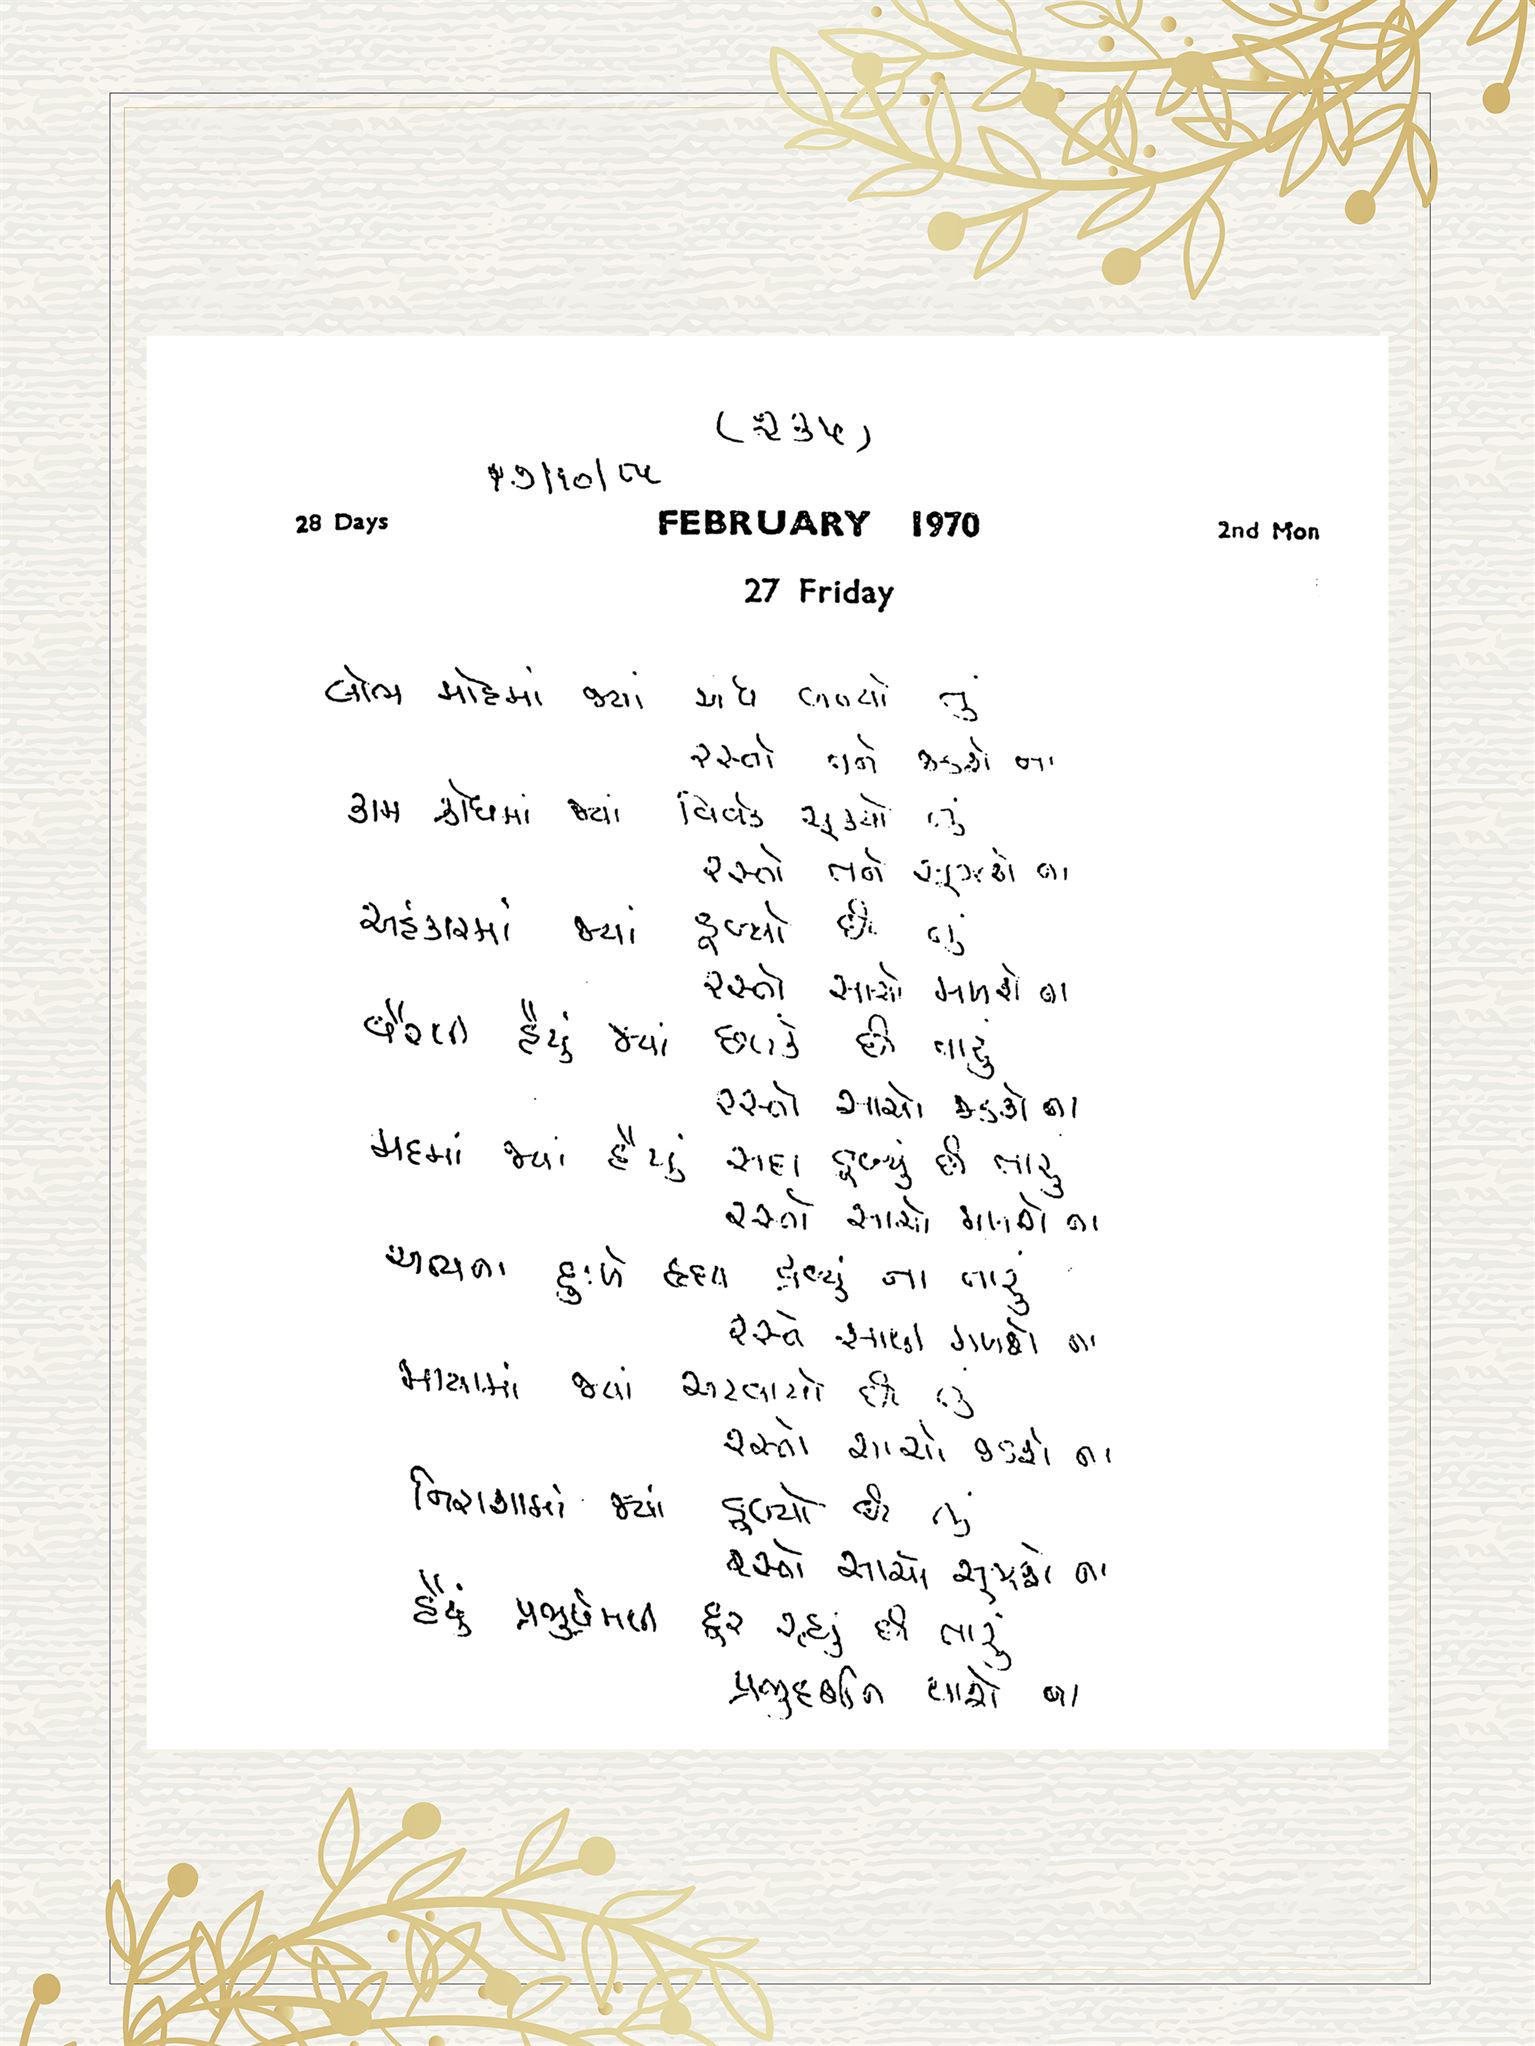 (૨૩૫)
૧૭/૧૦/૮૫
28 Days FEBRUARY 1970 2nd Mon
27 Friday
લોભ મોહમાં જ્યાં અંધ બન્યો તું
રસ્તો તને જડશે ના
કામ ક્રોધમાં જ્યાં વિવેક ચૂક્યો તું
રસ્તો તને સૂઝશે ના
અહંકારમાં જ્યાં ડૂબ્યો છે તું
રસ્તો સાચો મળશે ના
વૈરથી હૈયું જ્યાં છલકે છે તારું
રસ્તો સાચો જડશે ના
મદમાં જ્યાં હૈયું સદા ડૂબ્યું છે તારું
રસ્તો સાચો મળશે ના
અન્યના દુઃખે હૃદય દ્રવ્યું ના તારું
રસ્તો સાચો મળશે ના
માયામાં જ્યાં અટવાયો છે તું
રસ્તો સાચો જડશે ના
નિરાશામાં જ્યાં ડૂબ્યો છે તું
રસ્તો સાચો સૂઝશે ના
હૈયું પ્રભુપ્રેમથી દૂર રહ્યું છે તારું
પ્રભુદર્શન થાશે ના